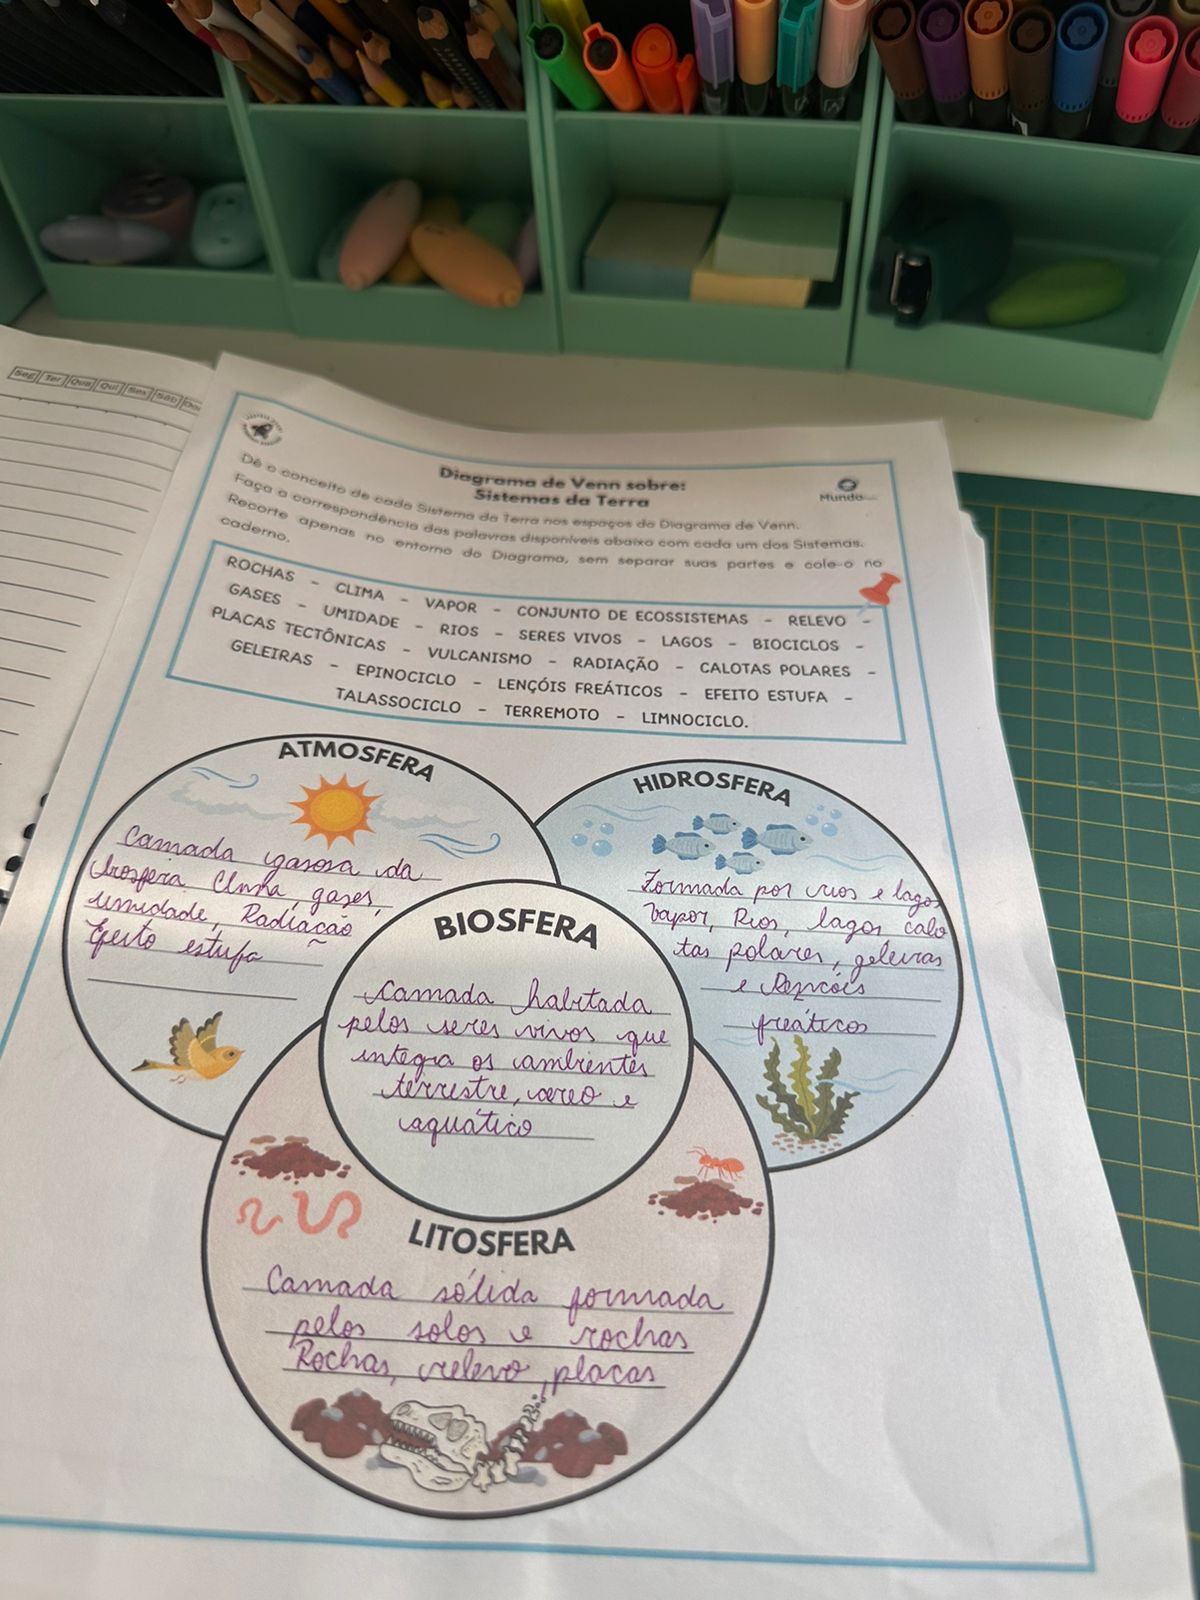 Seg Ter Qua Qui Sex Sáb Do
Diagrama de Venn sobre:
Sistemas da Terra
Mundo
Dê o conceito de cada Sistema da Terra nos espaços do Diagrama de Venn.
Faça a correspondência das palavras disponíveis abaixo com cada um dos Sistemas.
Recorte apenas no entorno do Diagrama, sem separar suas partes e cole-o no
caderno.
ROCHAS - CLIMA - VAPOR - CONJUNTO DE ECOSSISTEMAS - RELEVO -
GASES - UMIDADE - RIOS - SERES VIVOS - LAGOS - BIOCICLOS -
PLACAS TECTÔNICAS - VULCANISMO - RADIAÇÃO - CALOTAS POLARES -
GELEIRAS - EPINOCICLO - LENÇÓIS FREÁTICOS - EFEITO ESTUFA -
TALASSOCICLO - TERREMOTO - LIMNOCICLO.
ATMOSFERA
Camada gasosa da
Clima, gases,
umidade, Radiação
Efeito estufa
HIDROSFERA
Formada por rios e lagos
Vapor, Rios, lagos calo
tas polares, geleiras
e lençóis
freáticos
BIOSFERA
Camada habitada
pelos seres vivos que
integra os ambientes
terrestre, aereo e
aquático
LITOSFERA
Camada sólida formada
pelos solos e rochas
Rochas, relevo, placas